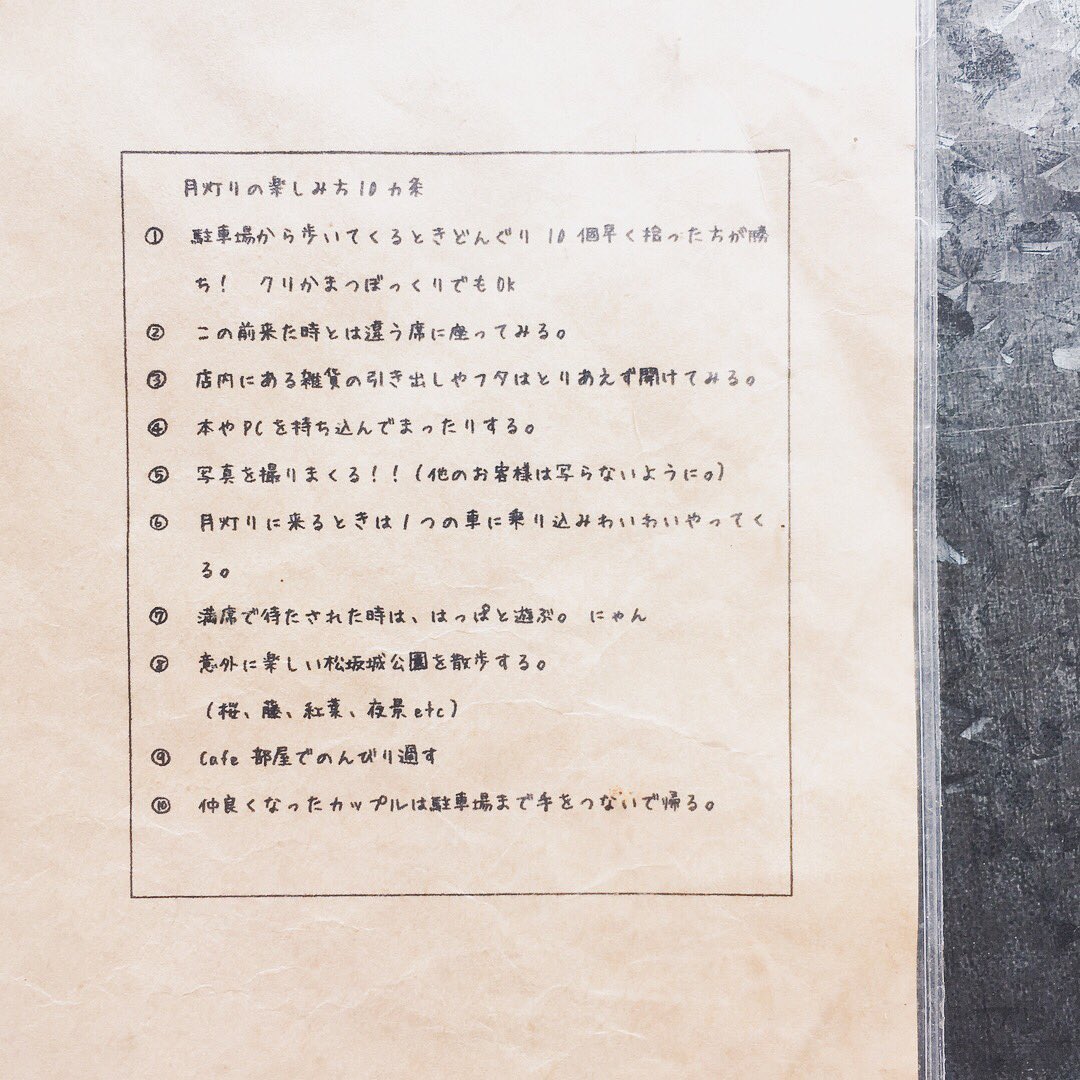 月灯りの楽しみ方10カ条
① 駐車場から歩いてくるときどんぐり 10 個早く拾った方が勝
ち！ クリかまつぼっくりでもOK
② この前来た時とは違う席に座ってみる。
③ 店内にある雑貨の引き出しやフタはとりあえず開けてみる。
④ 本やPCを持ち込んでまったりする。
⑤ 写真を撮りまくる！！（他のお客様は写らないように。）
⑥ 月灯りに来るときは1つの車に乗り込みわいわいやってく
る。
⑦ 満席で待たされた時は、はっぱと遊ぶ。 にゃん
⑧ 意外に楽しい松坂城公園を散歩する。
（桜、藤、紅葉、夜景etc）
⑨ Cafe 部屋でのんびり過す
⑩ 仲良くなったカップルは駐車場まで手をつないで帰る。